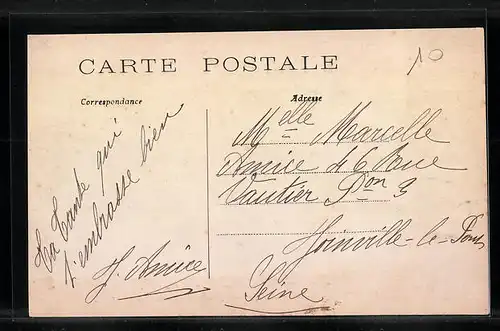 CARTE POSTALE
10
Correspondance
Adresse
Ta Tante qui
t'embrasse bien
J. Amice
Melle Marcelle
Amice 6 Rue
Vautier Pon 3
Joinville-le-Pont
Seine